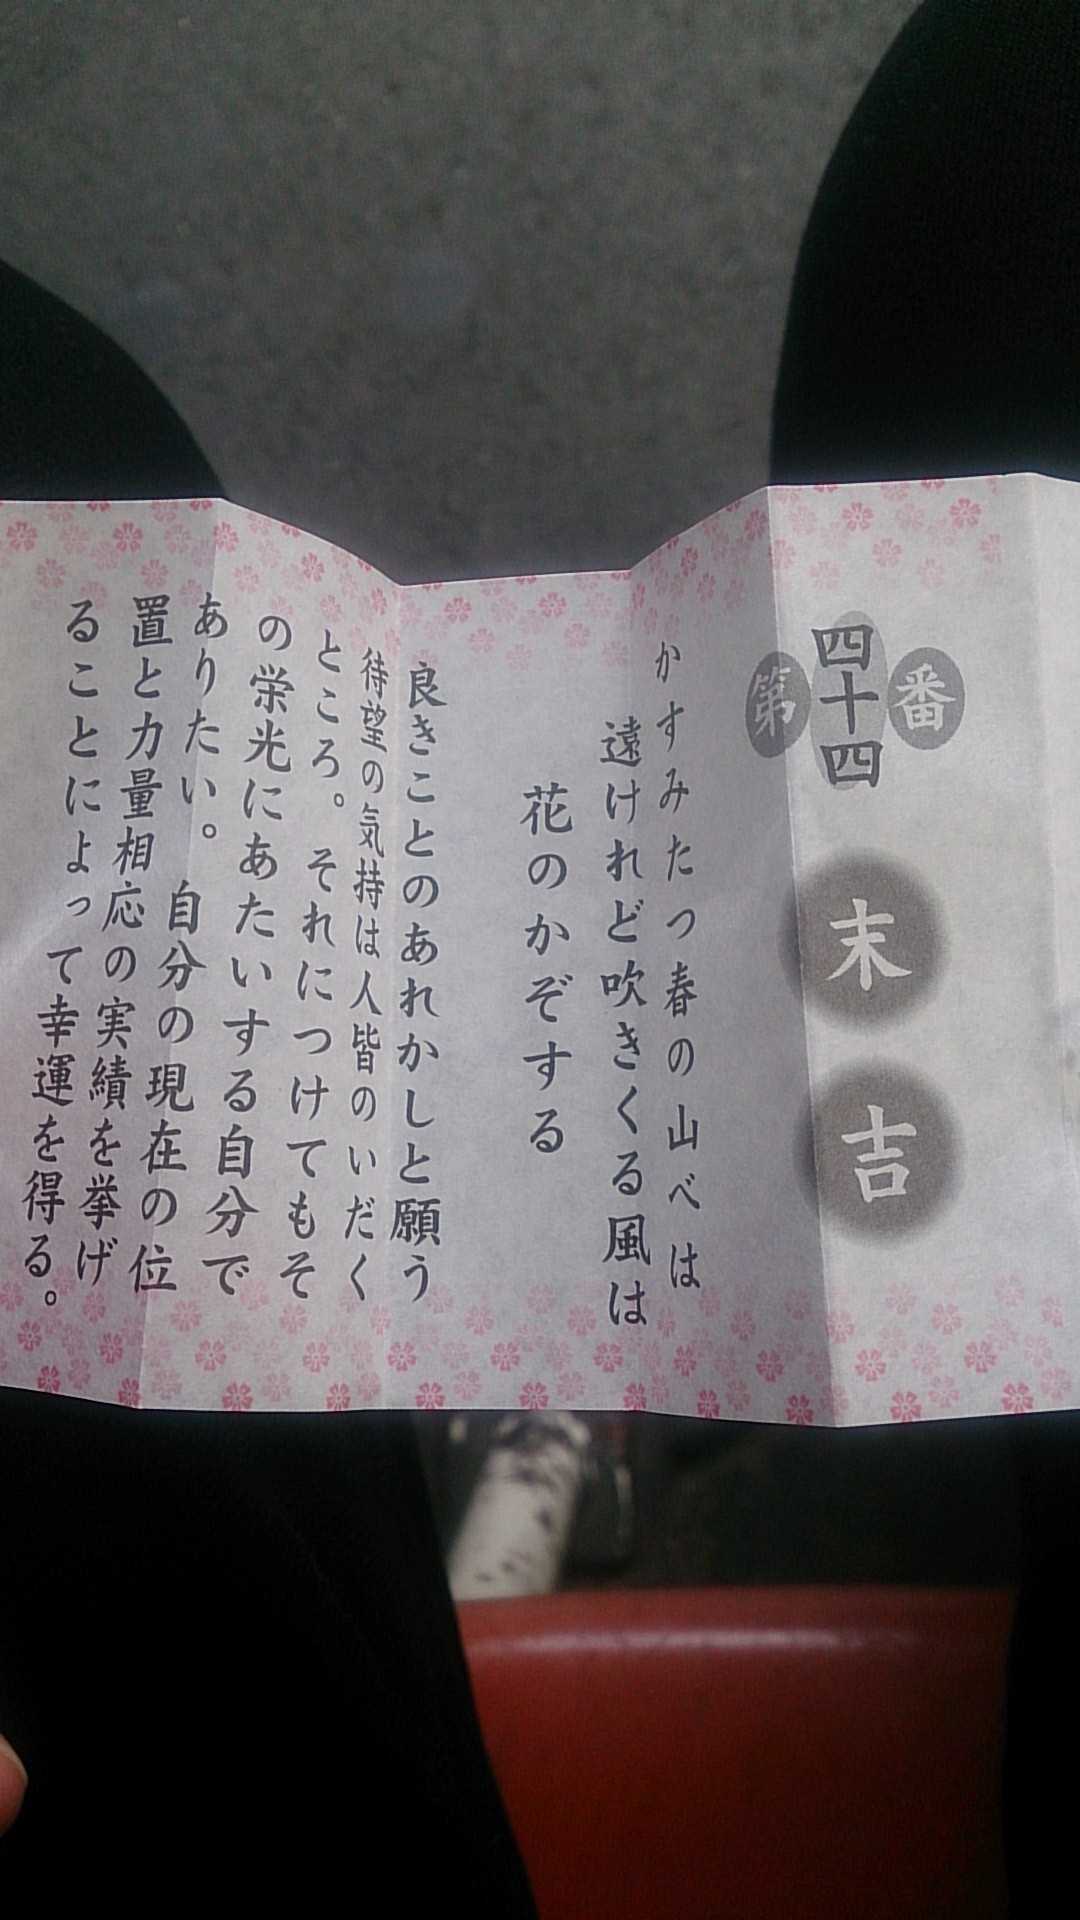 第四十四番
末吉
かすみたつ春の山べは
遠けれど吹きくる風は
花のかぞする
良きことのあれかしと願う
待望の気持は人皆のいだく
ところ。それにつけてもそ
の栄光にあたいする自分で
ありたい。自分の現在の位
置と力量相応の実績を挙げ
ることによって幸運を得る。